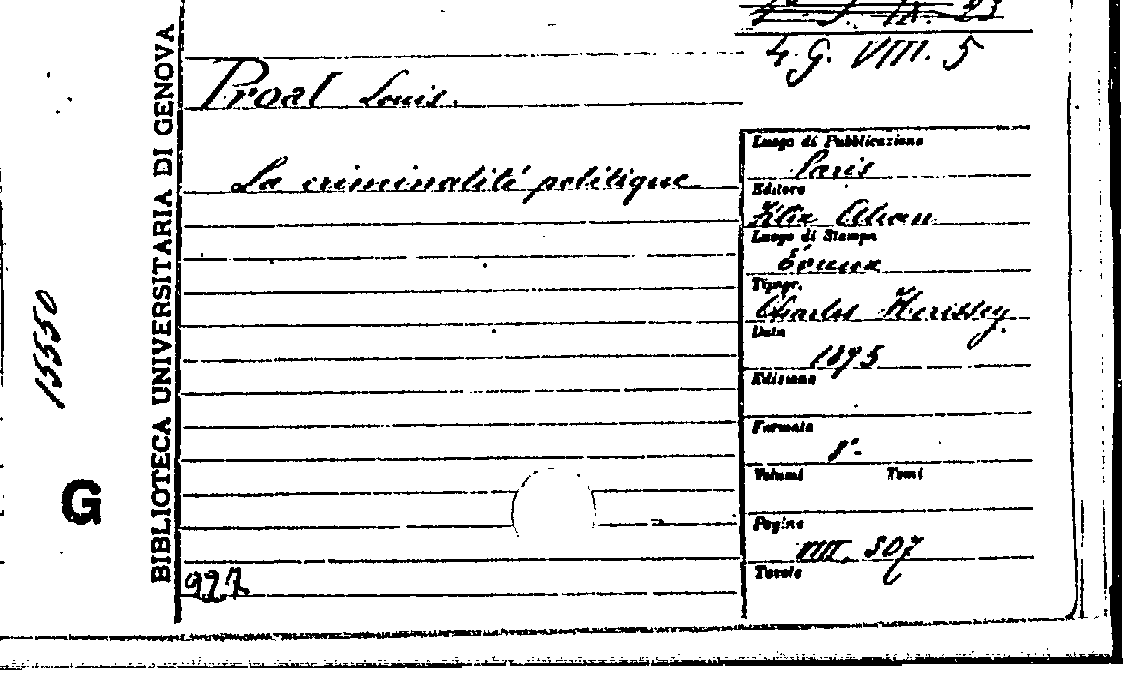 4. G. VIII. 5
Proal Louis.
La criminalité politique
BIBLIOTECA UNIVERSITARIA DI GENOVA
15550
G
927
Luogo di Pubblicazione
Paris
Editore
Félix Alcan
Luogo di Stampa
Évreux
Tipogr.
Charles Herissey
Data
1895
Edizione
Formato
8°-
Volumi Tomi
Pagine
VIII, 307
Tavole